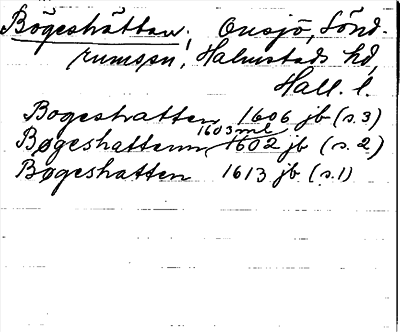 Bögeshättan, Onsjö, Sönd-
rumsn, Halmstads hd,
Hall. l.
Bogeshatten 1606 jb (s. 3)
1603 ml
Bøgeshattenn 1602 jb (s. 2)
Bøgeshatten 1613 jb (s. 1)